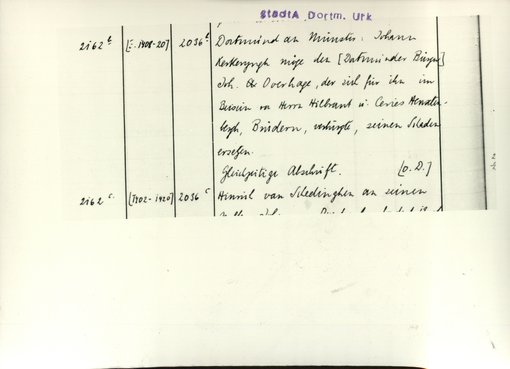 StadtA Dortm. Urk
2162 b. [z. 1408-20] 2036 b Dortmund an Münster: Johann
Kerkeryngh möge den [Dortmunder Bürger]
Joh. Overhage, der sich für ihn im
Beisein von Herrn Hilbrant u. Cervies
Brüdern, verbürgte, seinen Schaden
ersetzen.
Gleichzeitige Abschrift. [o. D.]
2162 c. [1402-1420] 2036 c Heinrich van Schedinghen an seinen